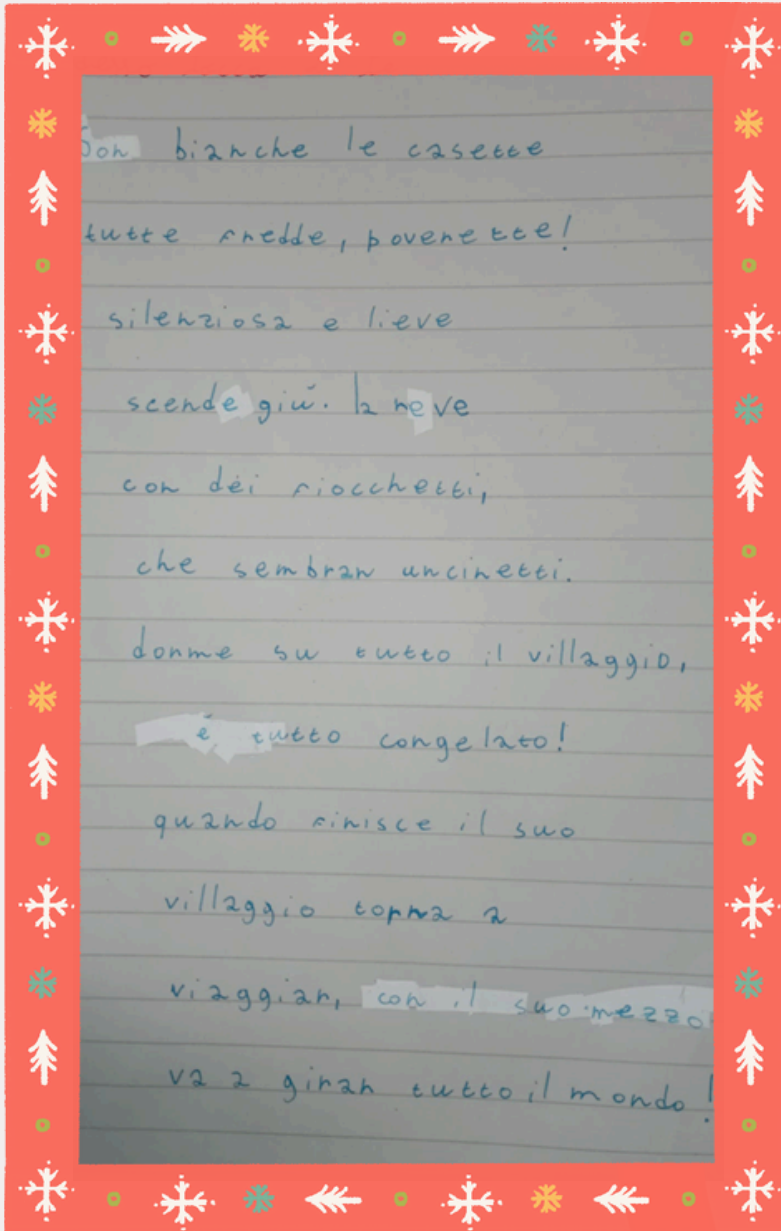 Son bianche le casette
tutte fredde, poverette!
silenziosa e lieve
scende giù. la neve
con dei fiocchetti,
che sembran uncinetti.
dorme su tutto il villaggio,
è tutto congelato!
quando finisce il suo
villaggio torna a
viaggiar, con il suo mezzo
va a girar tutto il mondo!